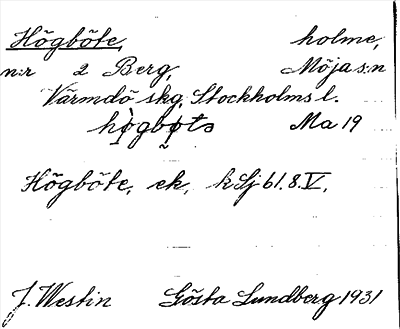 Högböte, holme,
n:r 2 Berg, Möja s:n
Värmdö skg, Stockholms l.
högbøts Ma 19
Högböte, ek, kSj 61.8.V.
J. Westin Gösta Lundberg 1931